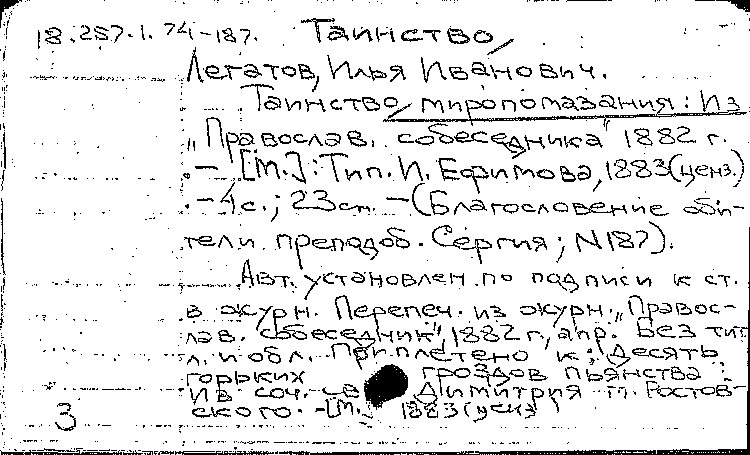 18.257.1.74-187. Таинство
Легатов, Илья Иванович.
Таинство миропомазания: Из
„Православ. собеседника" 1882 г.
– [М.]: Тип. И. Ефимова, 1883(ценз.)
. – 4с.; 23см. – (Благословение оби-
тели преподоб. Сергия; N187).
Авт. установлен по подписи к ст.
в журн. Перепеч. из журн. „Правос-
лав. собеседник", 1882 г., апр. Без тит.
л. и обл. Приплетено к: Десять
горьких гроздов пьянства:
Из соч. св. Димитрия м. Ростов-
ского. – [М.] 1883 (ценз)
3